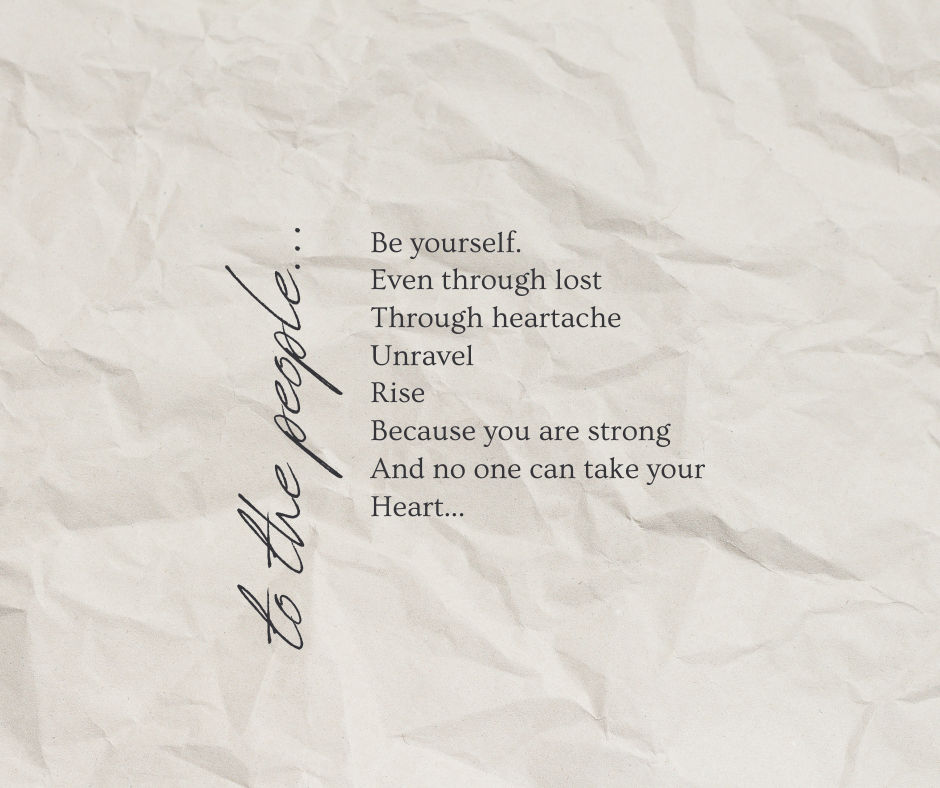 to the people...
Be yourself.
Even through lost
Through heartache
Unravel
Rise
Because you are strong
And no one can take your
Heart...